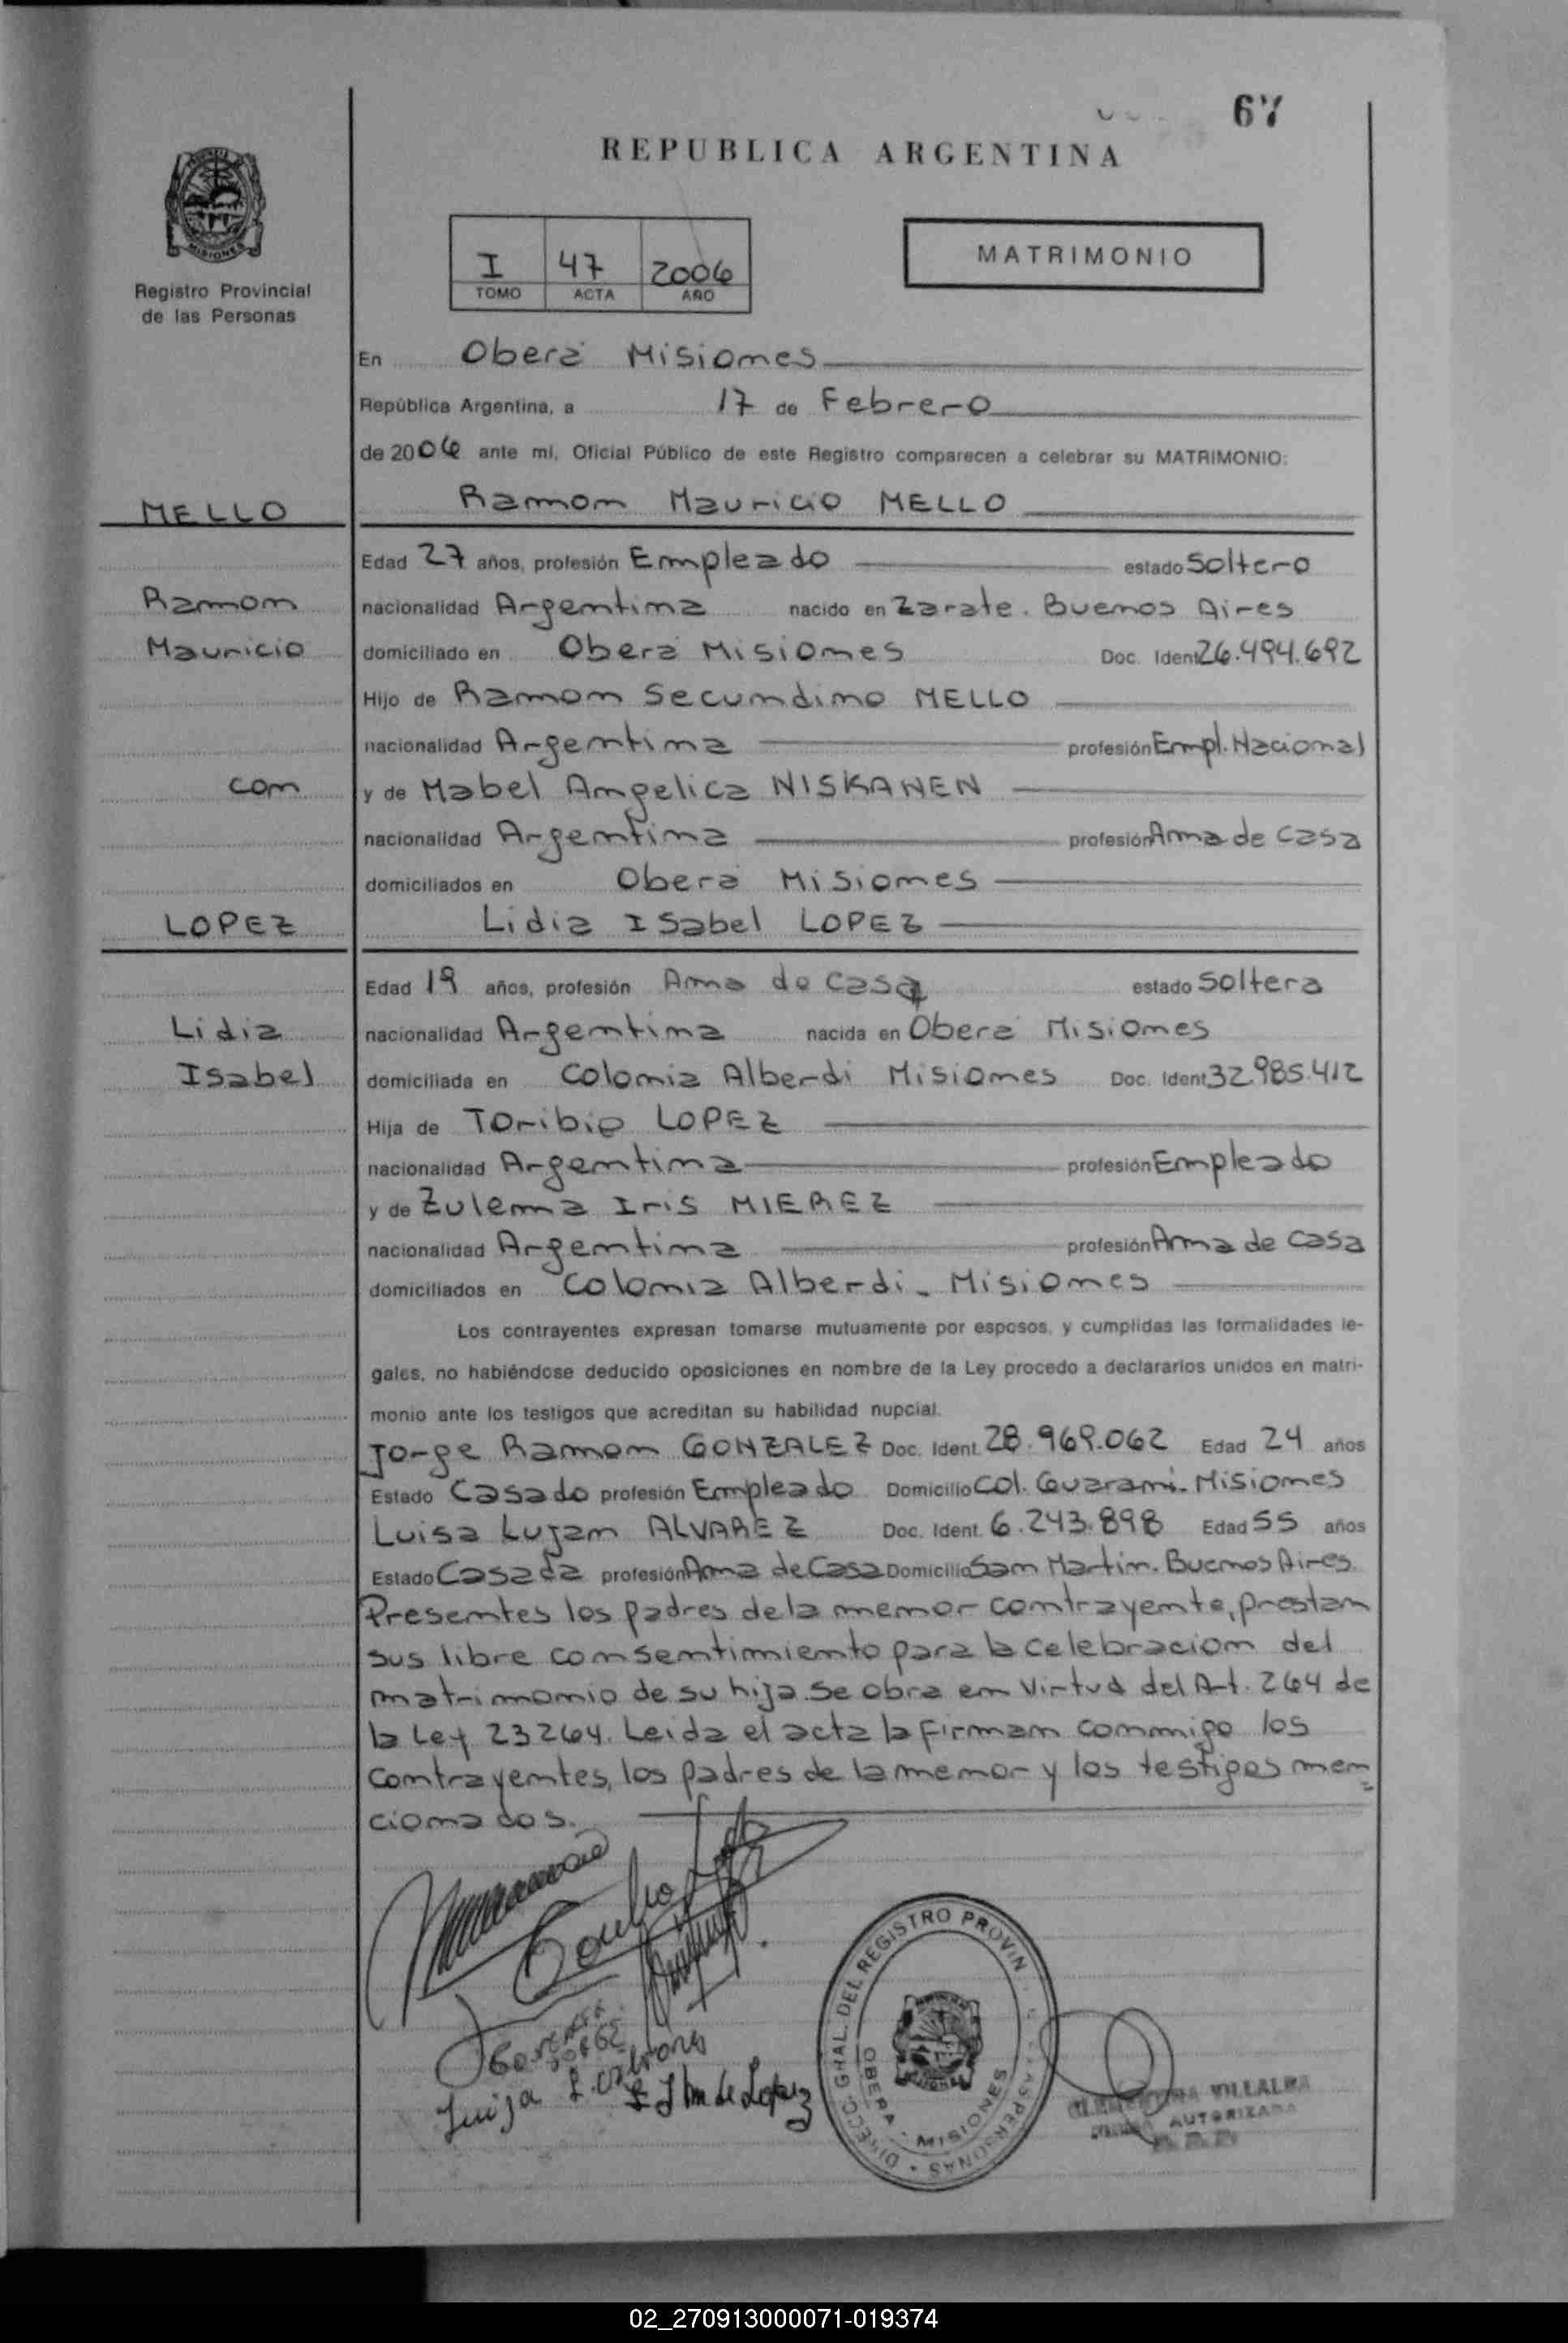 67
REPUBLICA ARGENTINA
MISIONES
Registro Provincial
de las Personas
I 47 2006
TOMO ACTA AÑO
MATRIMONIO
En Oberá Misiones
República Argentina, a 17 de Febrero
de 2006 ante mí, Oficial Público de este Registro comparecen a celebrar su MATRIMONIO:
MELLO Ramon Mauricio MELLO
Edad 27 años, profesión Empleado estado Soltero
Ramon nacionalidad Argentina nacido en Zarate. Buenos Aires
Mauricio domiciliado en Oberá Misiones Doc. Ident 26.494.692
Hijo de Ramon Secundino MELLO
nacionalidad Argentina profesión Empl. Nacional
con y de Mabel Angelica NISKANEN
nacionalidad Argentina profesión Ama de Casa
domiciliados en Oberá Misiones
LOPEZ Lidia Isabel LOPEZ
Edad 19 años, profesión Ama de Casa estado Soltera
Lidia nacionalidad Argentina nacida en Oberá Misiones
Isabel domiciliada en Colonia Alberdi Misiones Doc. Ident 32.985.412
Hija de Toribio LOPEZ
nacionalidad Argentina profesión Empleado
y de Zulema Iris MIEREZ
nacionalidad Argentina profesión Ama de Casa
domiciliados en Colonia Alberdi - Misiones
Los contrayentes expresan tomarse mutuamente por esposos, y cumplidas las formalidades le-
gales, no habiéndose deducido oposiciones en nombre de la Ley procedo a declararlos unidos en matri-
monio ante los testigos que acreditan su habilidad nupcial.
Jorge Ramon GONZALEZ Doc. Ident. 28.969.062 Edad 24 años
Estado Casado profesión Empleado Domicilio Col. Guarani. Misiones
Luisa Lujan ALVAREZ Doc. Ident. 6.243.898 Edad 55 años
Estado Casada profesión Ama de Casa Domicilio San Martin. Buenos Aires.
Presentes los padres de la menor contrayente, prestan
sus libre consentimiento para la celebracion del
matrimonio de su hija. Se obra en virtud del Art. 264 de
la Ley 23264. Leida el acta la firman conmigo los
contrayentes, los padres de la menor y los testigos men=
cionados.
Luisa L.
de Lopez
DIRECC. GRAL. DEL REGISTRO PROVIN. LAS PERSONAS
OBERA - MISIONES
MISIONES
VILLALBA
AUTORIZADA
02_270913000071-019374